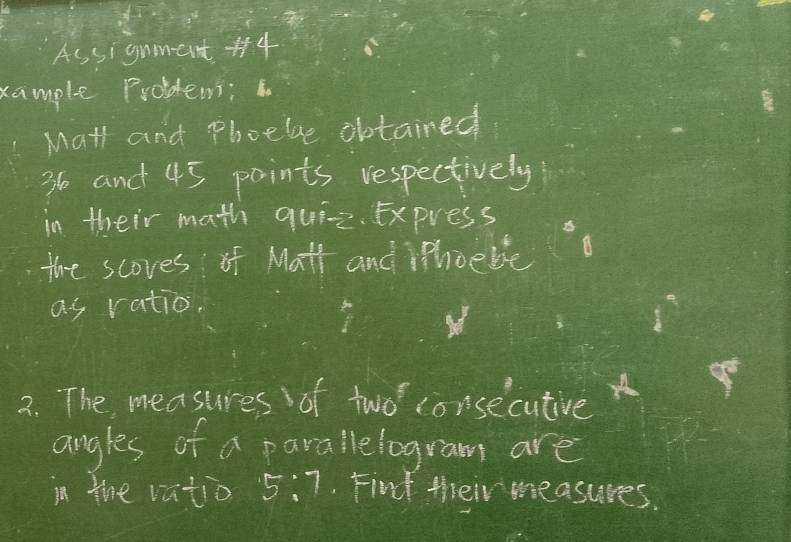 Assignment #4
xample Problem:
1 Matt and Phoebe obtained
36 and 45 points respectively
in their math quiz. Express
the scores of Matt and Phoebe
as ratio.
2. The measures of two consecutive
angles of a parallelogram are
in the ratio 5:7. Find their measures.